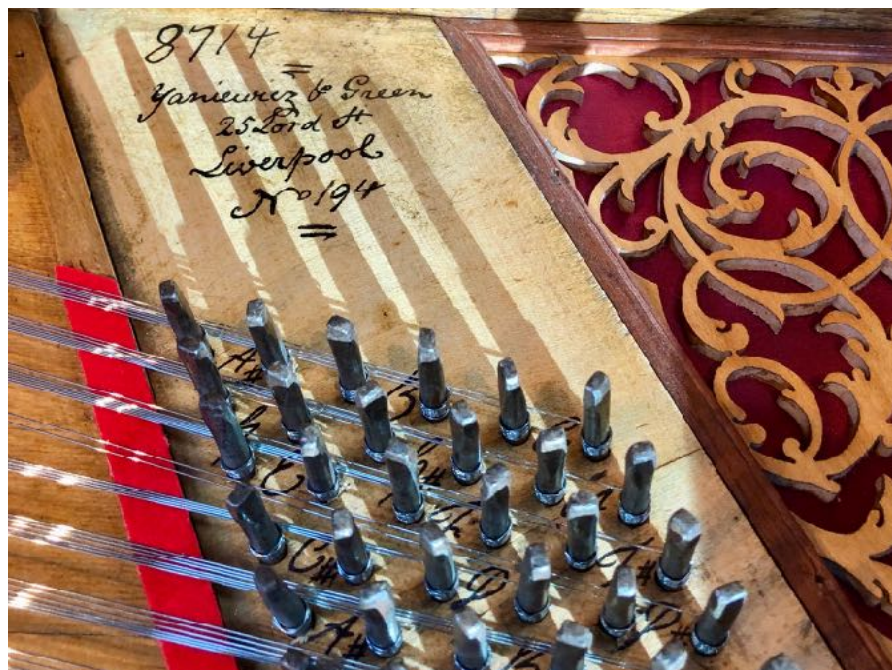 8714
Yaniewicz & Green
25 Lord St
Liverpool
No 194
A#
B
C
C#
D
A#
B
D#